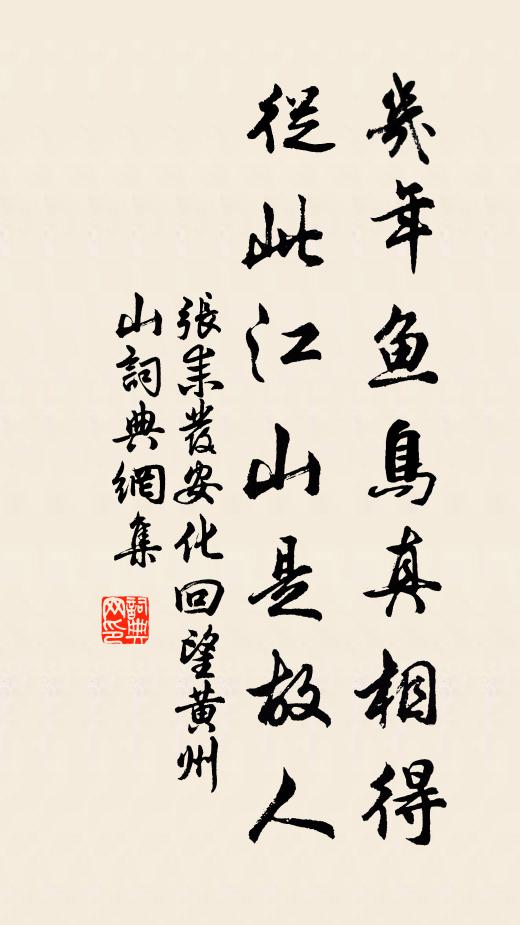 幾年魚鳥真相得
從此江山是故人
張耒發安化回望黃州
山詞典網集
詞典
网印